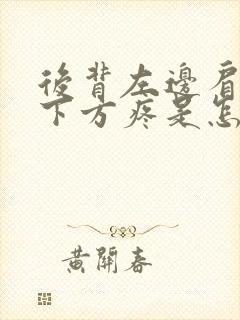 後背左邊肩
下方疼是怎
黃開春